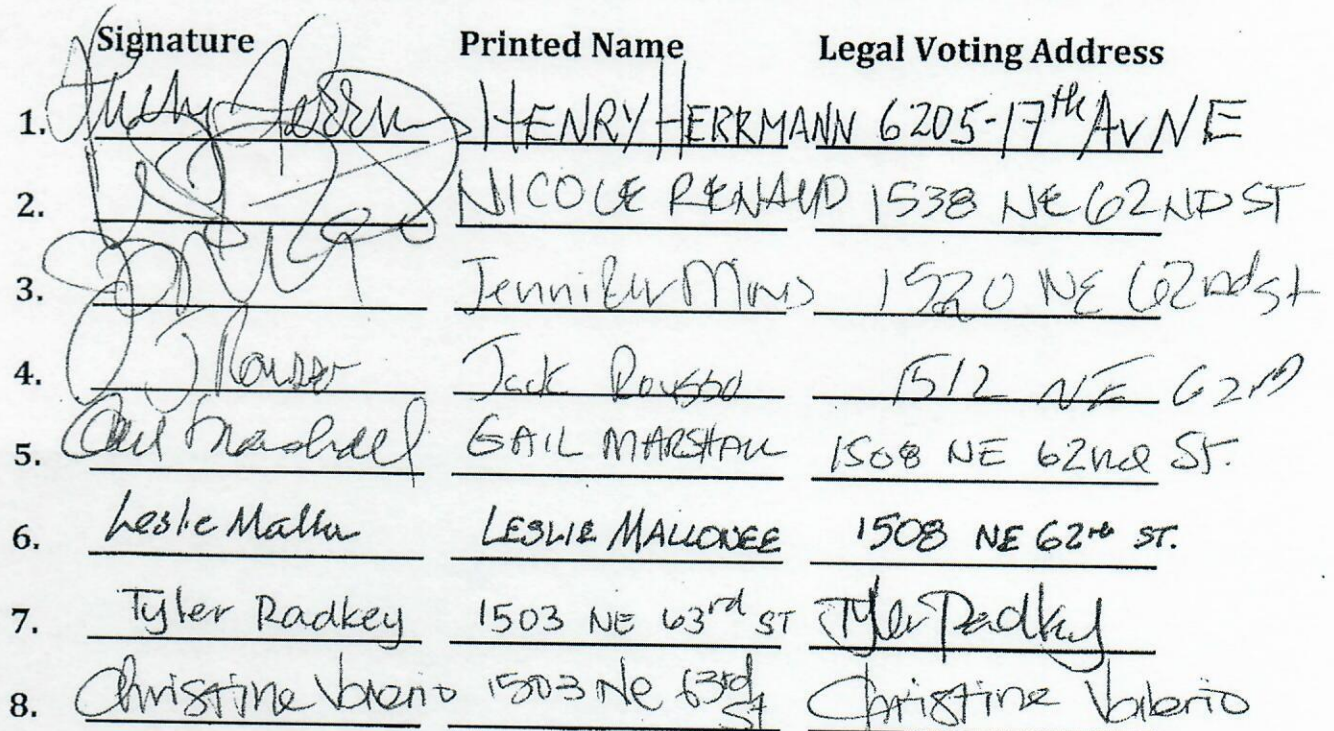 Signature Printed Name Legal Voting Address
1. HENRY HERRMANN 6205-17th AV NE
2. NICOLE RENAUD 1538 NE 62ND ST
3. Jennifer 1520 NE 62nd St
4. J Rousso Jack Rousso 1512 NE 62nd
5. Gail Marshall GAIL MARSHALL 1508 NE 62nd St.
6. Leslie Mallonee LESLIE MALLONEE 1508 NE 62nd ST.
7. Tyler Radkey 1503 NE 63rd ST Tyler Radkey
8. Christine Valerio 1503 NE 63rd St Christine Valerio